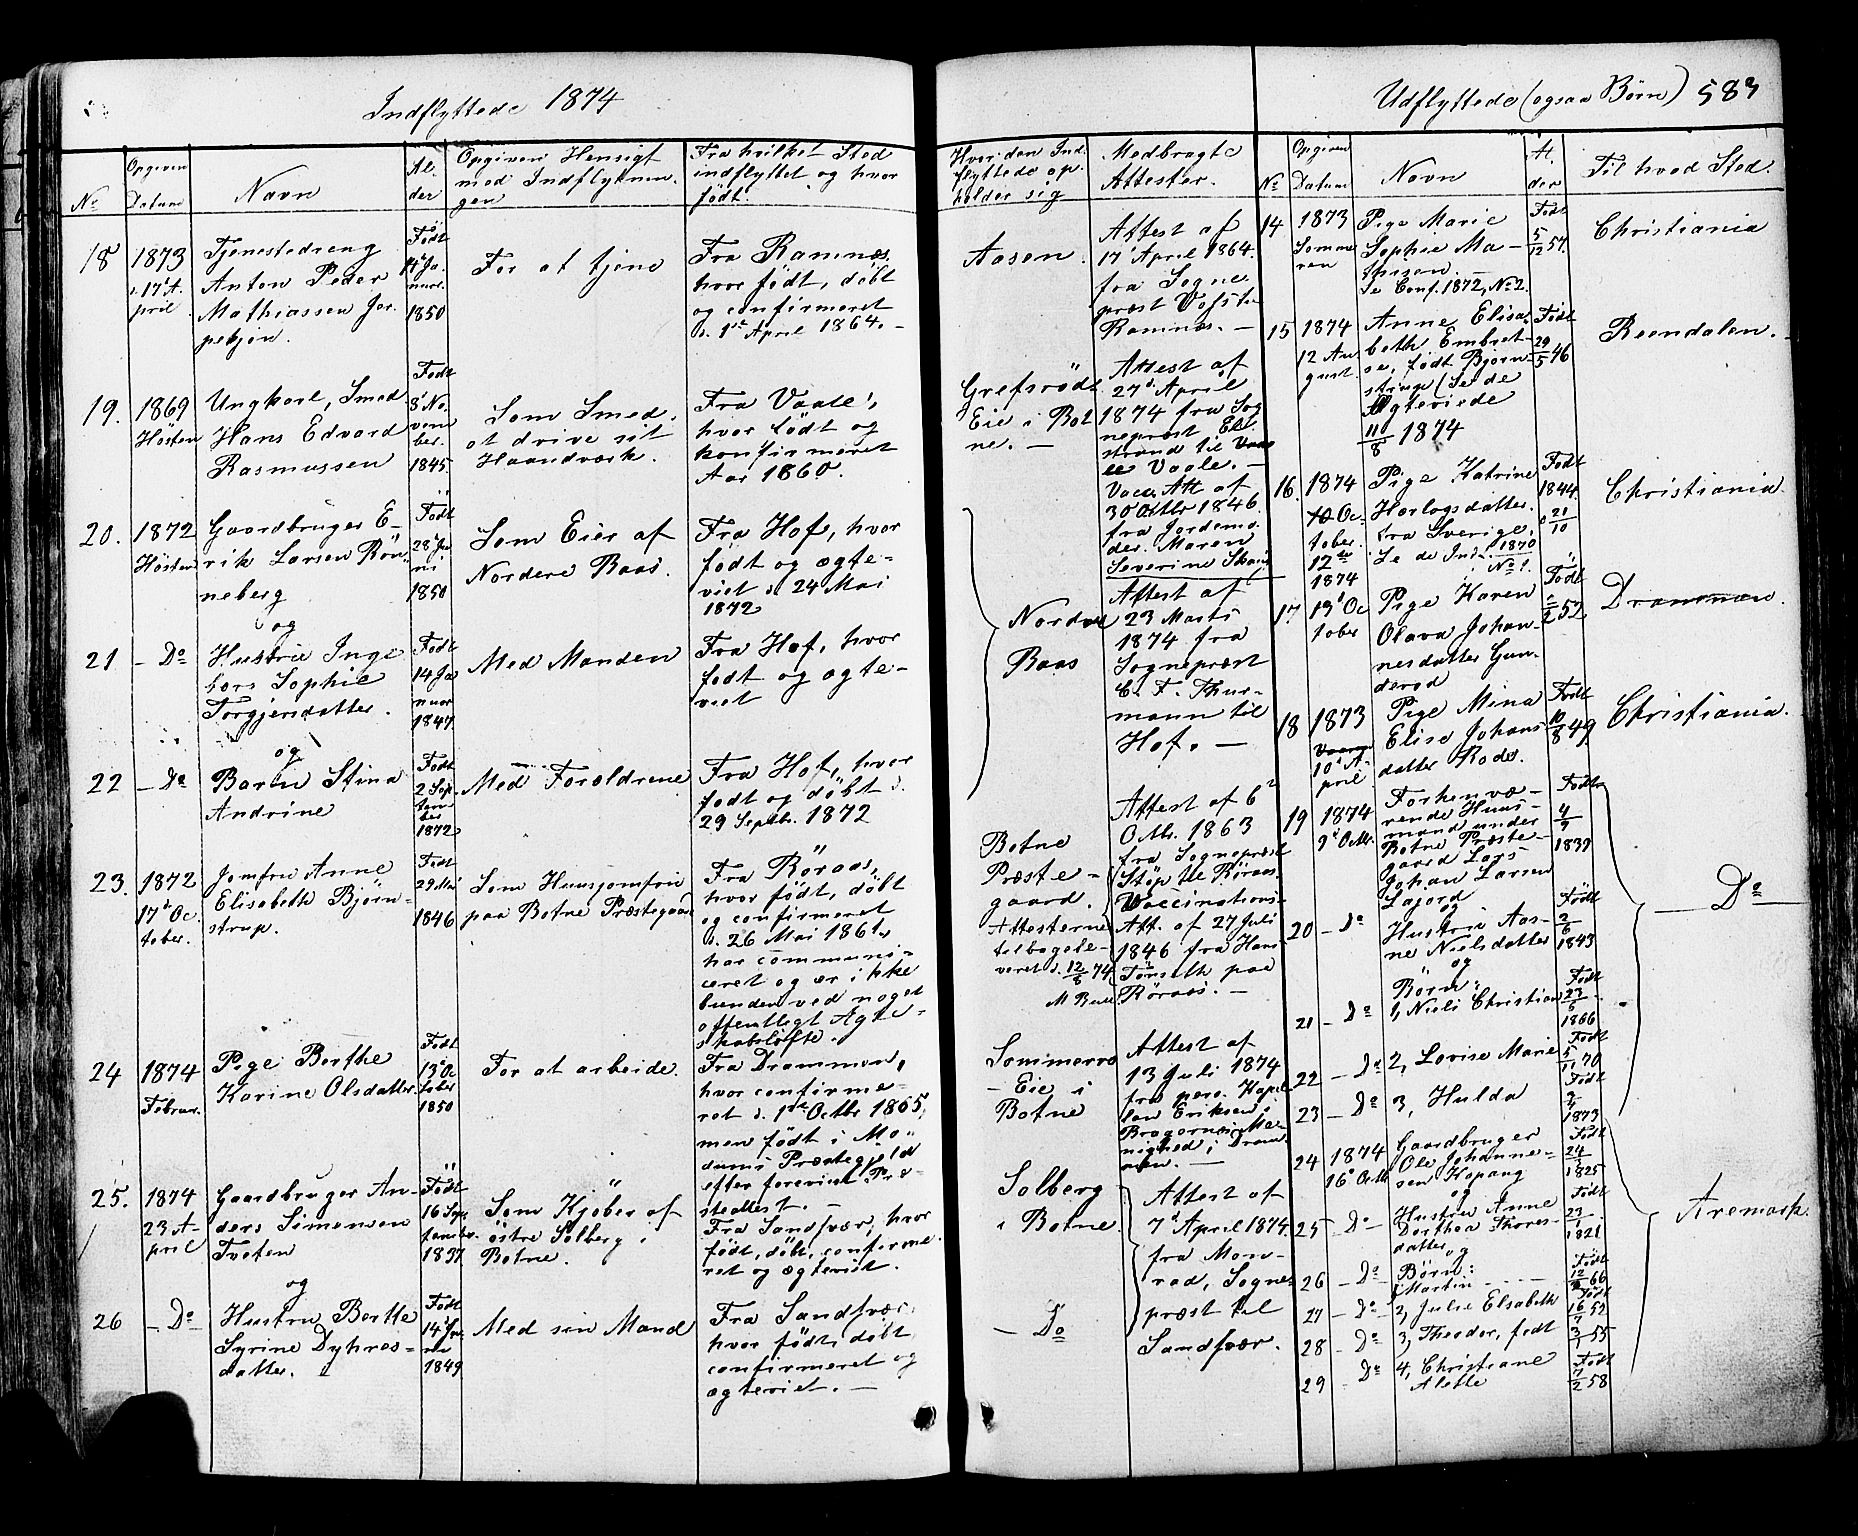 Indflyttede 1874
No
Opgiven Datum
Navn
Alder
Opgiven Hensigt
med Indflytnin-
gen
Fra hvilket Sted
indflyttet og hvor
født.
Hvor den Ind-
flyttede op-
holder sig
Medbragte
Attester.
18
1873
d. 17d A-
pril
Tjenestedreng
Anton Peder
Mathiassen
Født
Ja-
nuar
1850
For at tjene
Fra Ramnæs,
hvor født, døbt
og confirmeret
d. 1ste April 1864.
Aasen.
Attest af
17d April 1864.
fra Sogne
præst
Ramnæs. —
19.
1869
Høsten
Ungkarl, Smed
Hans Edvard
Rasmussen
Født
8d No-
vem
ber.
1845.
Som Smed.
at drive sit
Haandværk.
Fra Vaale,
hvor født og
konfirmeret
Aar 1860.
Grefsrød
Eie i Bot
ne. —
Attest af
27d April
1874 fra Sog
nepræst
til
Vaale. —
20.
1872
Høsten
Gaardbruger E-
rik Larsen Røn
neberg
og
Født
28
1850
Som Eier af
Nordere Raas.
Fra Hof, hvor
født og ægte-
viet d. 24 Mai
1872
Vacc. Att. af
30 Octbr 1846
fra Jordemo
der. Maren
Severine
21
— Do
Hustru Inge
bors Sophie
Torgjersdatter.
og
Født
14 Ja
nuar
1847.
Med Manden
Fra Hof, hvor
født og ægte-
viet
Nordre
Raas
Attest af
23 Marts
1874 fra
Sognepræst
C. F. Thur-
mann til
Hof. —
22
— Do
Barn Stina
Andrine
Født
2 Sep-
tem
ber
1872
Med Forældrene
Fra Hof, hvor
født og døbt d.
29 Septbr. 1872
23.
1872
17d Oc
tober.
Jomfru Anne
Elisabeth Bjørn-
strup.
Født
29 Mai
1846
Som Huusjomfru
paa Botne Præstegaard
Fra Røraas,
hvor født, døbt
og confirmeret
d. 26 Mai 1861,
har communi-
ceret og er ikke
bunden ved noget
offentligt Ægte-
skabsløfte.
Botne
Præste-
gaard.
Attesterne
tilbagele-
veret d. 12/8 74
Attest af 6d
Octbr. 1863
fra Sognepræst
Støp til Røraas.
Vaccinations-
Att. af 27 Juli
1846 fra Hans
paa
Røraas. —
24
1874
Februar.
Pige Berthe
Karine Olsdatter
Født
13d Oc
tober
1850
For at arbeide.
Fra Drammen,
hvor confirme-
ret d. 1ste Octbr 1865,
men født i Mo-
dums Præstegjeld
efter foreviist Præ-
steattest. —
Sommerro
— Eie i
Botne
Attest af
13 Juli 1874
fra pers. Kapel
lan Eriksen i
Bragernæs Me-
nighed i Dram
men. —
25.
1874
23 A-
pril
Gaardbruger An-
ders Simensen
Tveten
og
Født
16 Sep
tember.
1837
Som Kjøber af
østre Solberg i
Botne.
Fra Sandsvær, hvor
født, døbt, confirme-
ret og ægteviet.
Solberg
i Botne
Attest af
7d April 1874.
fra Mon-
rad, Sogne
præst til
Sandsvær.
26
— Do
Hustru Berthe
Syrine Dyhres-
datter.
Født
14d
1849
Med sin Mand
Fra Sandsvær,
hvor født, døbt,
confirmeret og
ægteviet. —
— Do
Udflyttede (ogsaa Børn) 583
No
Opgiven Datum
Navn
Al-
der
Til hvad Sted.
14
1873
Somme
ren
Pige Marie
Sophie Ma-
thisen. —
Se Conf. 1872, No 2.
Født
5/12 57.
Christiania
15
1874
12 Au
gust.
Anne Elisa-
beth Embret-
se, født Bjørn-
strup (Se de
Ægteviede
11/8 1874
Født
29/5 46
Reendalen. —
16.
1874
10 Oc-
tober.
12te
1874
Pige Katrine
Harlogsdatter
fra Sverige.
Se de Ind. 1870
No 1.
Født
1844.
21/10
Christiania.
17.
19d Oc
tober
Pige Karen
Olava Johan-
nesdatter Gun-
derød
Født
52
Drammen.
18
1873
10d A-
pril
Pige Mina
Elise Johans
datter Røds.
Født
10/8 49
Christiania.
19
1874
9d Octbr.
Forhenvæ-
rende Huus-
mand under
Botne Præste-
gaard Lars
Johan Larsen
og
Født
4/9
1839
— Do —
20
— Do
Hustru Aas-
ne Nielsdatter
og
Født
2/6
1843
Børn:
21
— Do
1, Niels Christian
Født
23/5
1866
22
— Do
2, Lovise Marie
Født
5/11 70
23
— Do
3, Hulda
Født
1873
24
1874
16d Octbr
Gaardbruger
Ole Johanne-
sen Kopang
og
Født
24/1
1825
Aremark.
25
— Do —
Hustru Anne
Dorthea Thores-
datter og
Født
23/1
1821
26
— Do
Børn:
1, Martin — — —
Født
66
27
— Do
2, Julie Elsabeth
Født
16/7 52
28
— Do
3, Theodor, født
3/1 55
29
— Do
4, Christiane
Alette
Født
7/2 58